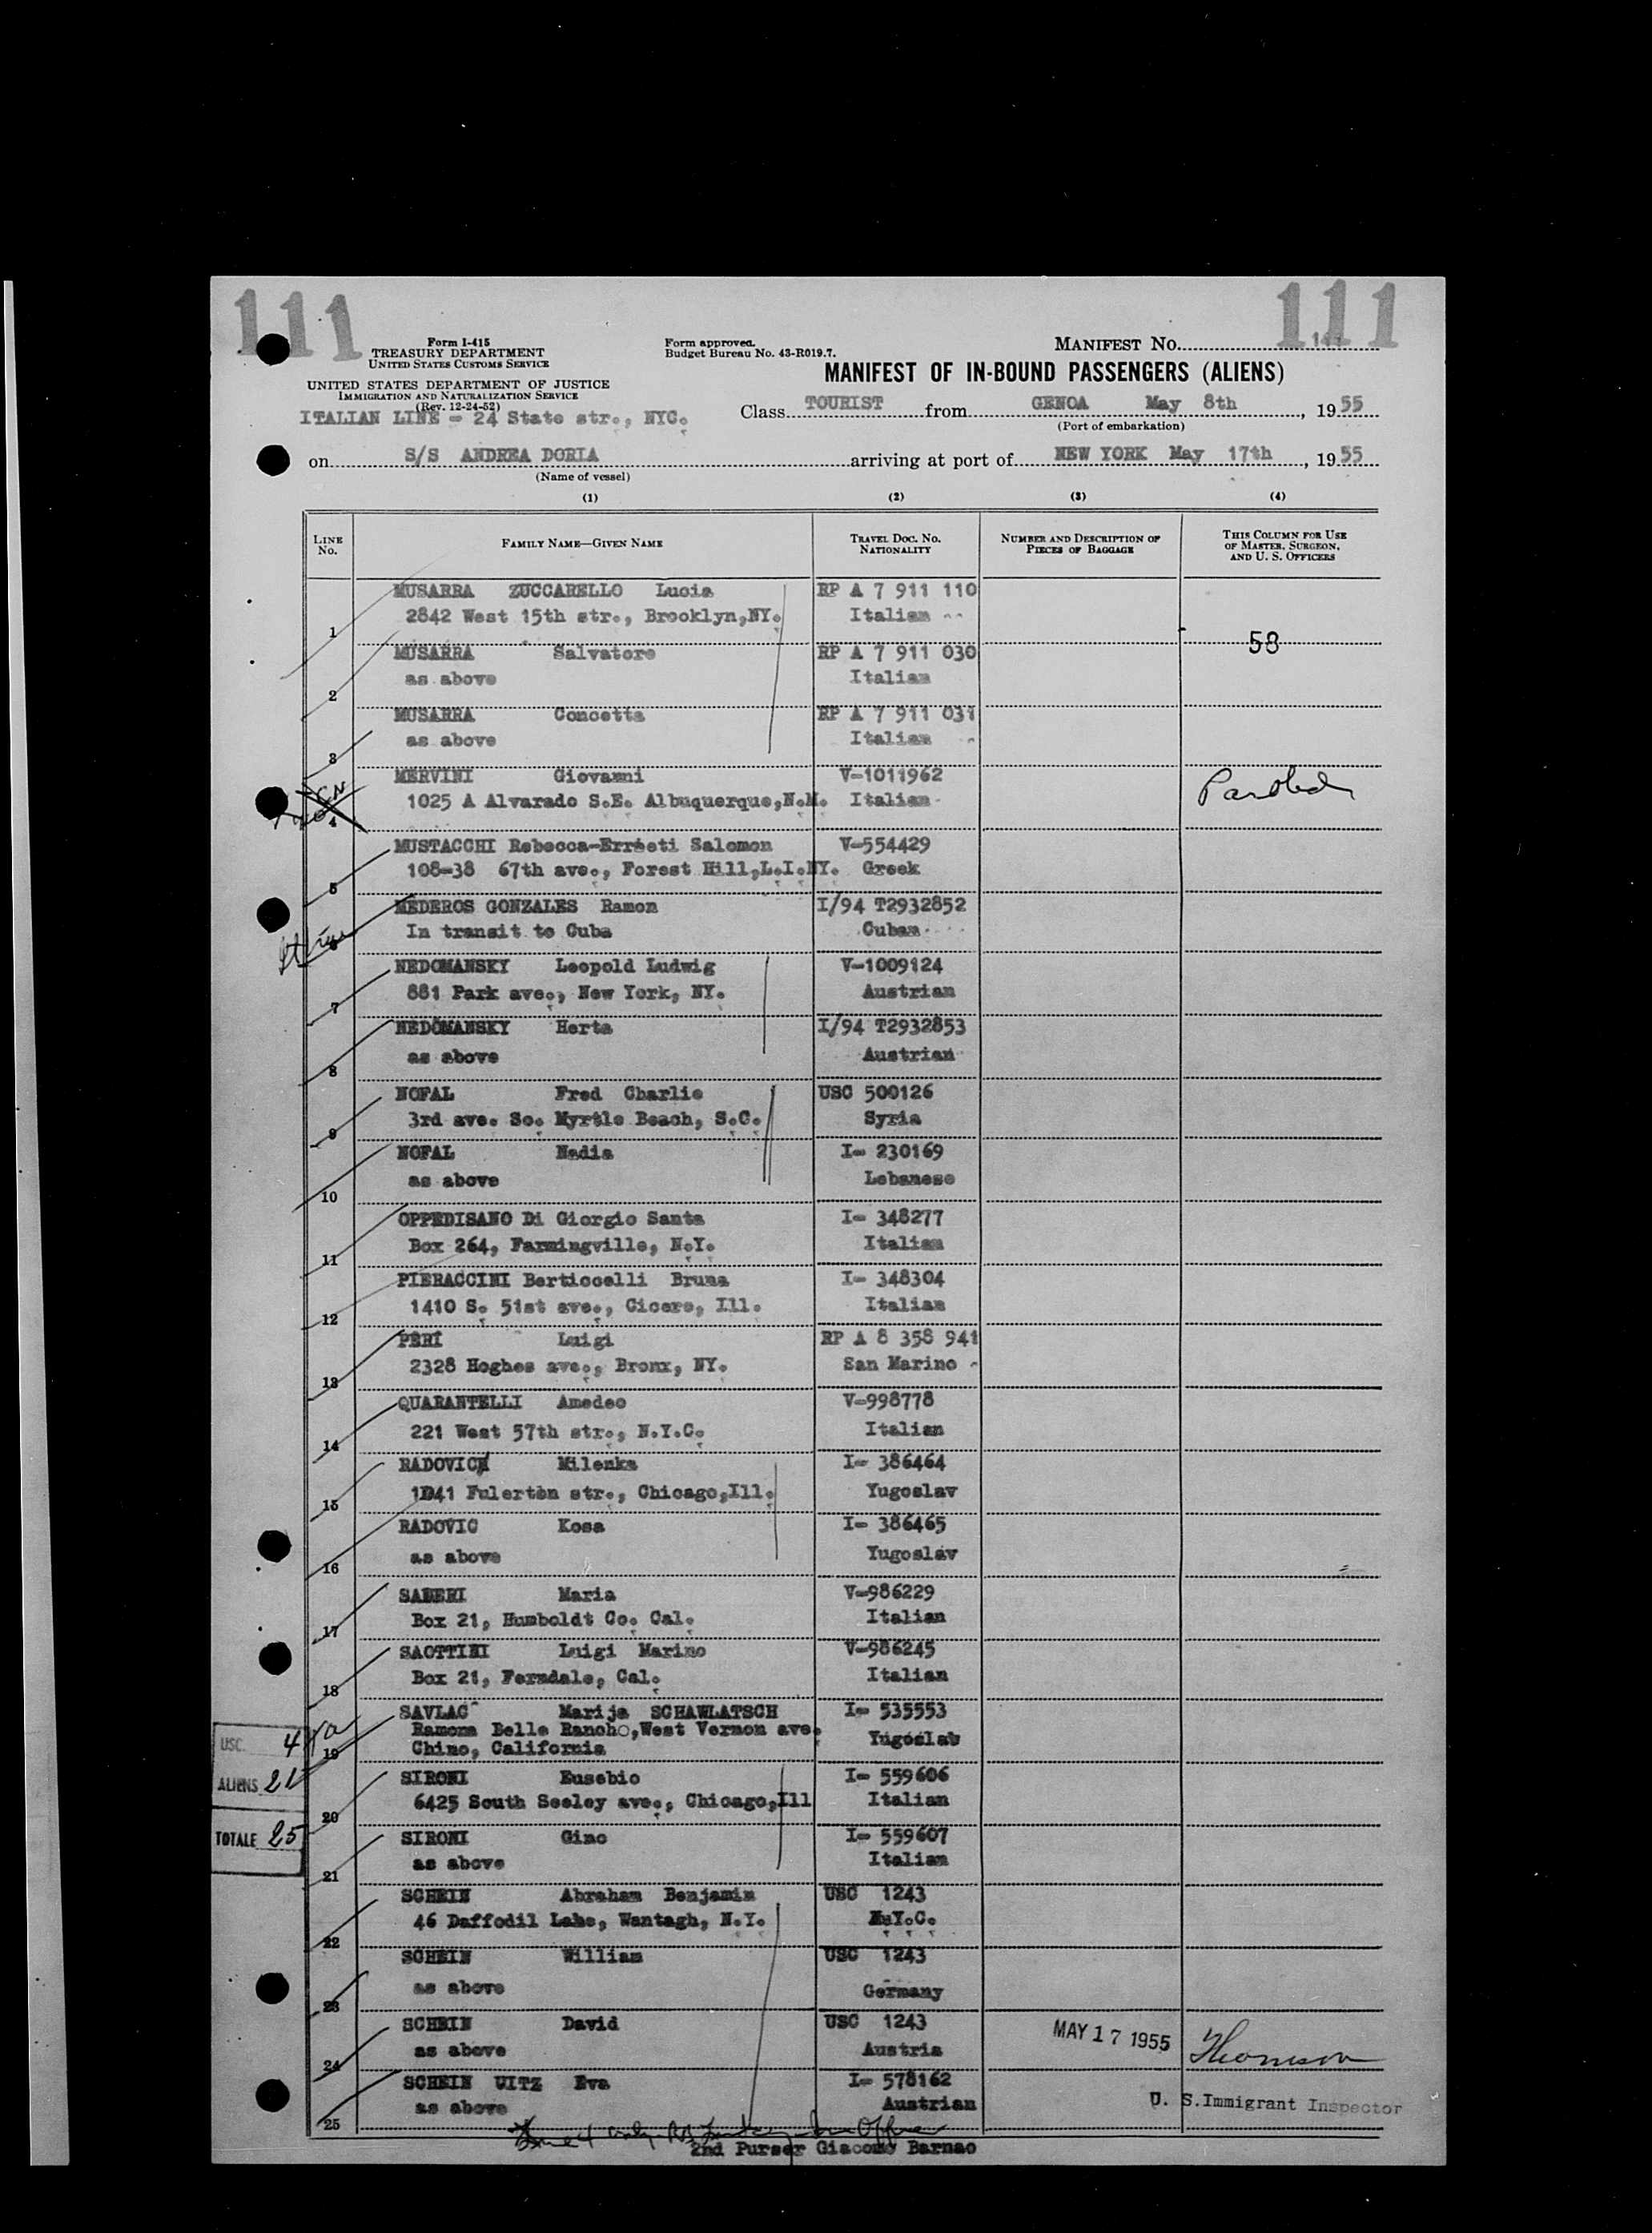 111
111
Form I-415
TREASURY DEPARTMENT
UNITED STATES CUSTOMS SERVICE
UNITED STATES DEPARTMENT OF JUSTICE
IMMIGRATION AND NATURALIZATION SERVICE
(Rev. 12-24-52)
ITALIAN LINE - 24 State str., NYC.
Form approved.
Budget Bureau No. 43-R019.7.
MANIFEST NO.
MANIFEST OF IN-BOUND PASSENGERS (ALIENS)
Class TOURIST from GENOA May 8th, 1955
(Port of embarkation)
on S/S ANDREA DORIA arriving at port of NEW YORK May 17th, 1955
(Name of vessel)
(1) (2) (3) (4)
LINE NO. FAMILY NAME—GIVEN NAME TRAVEL DOC. NO. NATIONALITY NUMBER AND DESCRIPTION OF PIECES OF BAGGAGE THIS COLUMN FOR USE OF MASTER, SURGEON, AND U. S. OFFICERS
MUSARRA ZUCCARELLO Lucia RP A 7 911 110
1 2842 West 15th str., Brooklyn,NY. Italian
58
MUSARRA Salvatore RP A 7 911 030
2 as above Italian
MUSARRA Concetta RP A 7 911 031
3 as above Italian
MERVINI Giovanni V-1011962 Paroled
4 1025 A Alvarado S.E. Albuquerque,N.M. Italian
MUSTACCHI Rebecca-Erreeti Salomon V-554429
5 108-38 67th ave., Forest Hill,L.I.NY. Greek
MEDEROS GONZALES Ramon I/94 T2932852
6 In transit to Cuba Cuban
NEDOMANSKY Leopold Ludwig V-1009124
7 881 Park ave., New York, NY. Austrian
NEDOMANSKY Herta I/94 T2932853
8 as above Austrian
NOFAL Fred Charlie USC 500126
9 3rd ave. So. Myrtle Beach, S.C. Syria
NOFAL Nadia I- 230169
10 as above Lebanese
OPPEDISANO Di Giorgio Santa I- 348277
11 Box 264, Farmingville, N.Y. Italian
PIERACCINI Berticcelli Bruna I- 348304
12 1410 S. 51st ave., Cicero, Ill. Italian
PERI Luigi RP A 8 358 941
13 2328 Hoghes ave., Bronx, NY. San Marino
QUARANTELLI Amedeo V-998778
14 221 West 57th str., N.Y.C. Italian
RADOVICH Milenka I- 386464
15 1941 Fulerton str., Chicago,Ill. Yugoslav
RADOVIC Kosa I- 386465
16 as above Yugoslav
SABERI Maria V-986229
17 Box 21, Humboldt Co. Cal. Italian
SAOTTINI Luigi Marino V-986245
18 Box 21, Ferndale, Cal. Italian
SAVLAC Marija SCHAWLATSCH I- 535553
Ramona Belle Rancho,West Vernon ave.
19 Chino, California Yugoslab
USC. 4
ALIENS 21
TOTALE 25
SIRONI Eusebio I- 559606
20 6425 South Seeley ave., Chicago,Ill Italian
SIRONI Gino I- 559607
21 as above Italian
SCHEIN Abraham Benjamin USC 1243
22 46 Daffodil Lahe, Wantagh, N.Y. N.Y.C.
SCHEIN William USC 1243
23 as above Germany
SCHEIN David USC 1243
24 as above Austria
MAY 17 1955 Thomson
SCHEIN UITZ Eva I- 578162
25 as above Austrian
U. S. Immigrant Inspector
2nd Purser Giacomo Barnao